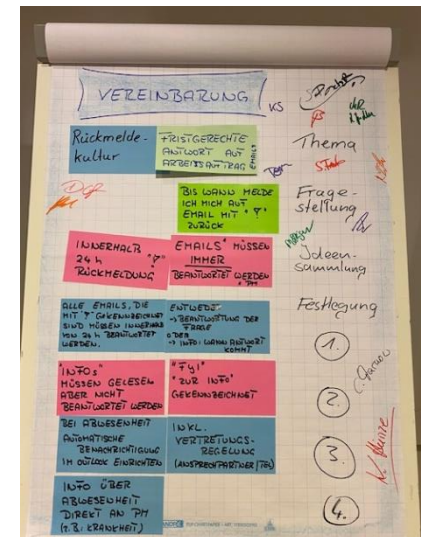 VEREINBARUNG
KS
Rückmelde-
kultur
FRISTGERECHTE
ANTWORT AUF
ARBEITSAUFTRAG
EMAILS
Thema
BIS WANN MELDE
ICH MICH AUF
EMAIL MIT "?"
ZURÜCK
Frage-
stellung
INNERHALB "?"
24 h
RÜCKMELDUNG
EMAILS* MÜSSEN
IMMER
BEANTWORTET WERDEN
* PM
Ideen-
sammlung
ALLE EMAILS, DIE
MIT "?" GEKENNZEICHNET
SIND MÜSSEN INNERHALB
VON 24h BEANTWORTET
WERDEN.
ENTWEDER
→ BEANTWORTUNG DER
FRAGE
ODER
→ INFO: WANN ANTWORT
KOMMT
Festlegung
1.
"INFOs"
MÜSSEN GELESEN
ABER NICHT
BEANTWORTET WERDEN
"FYI"
"ZUR INFO"
GEKENNZEICHNET
2.
BEI ABWESENHEIT
AUTOMATISCHE
BENACHRICHTIGUNG
IM OUTLOOK EINRICHTEN
INKL.
VERTRETUNGS-
REGELUNG
(ANSPRECHPARTNER/TEL)
3.
INFO ÜBER
ABWESENHEIT
DIREKT AN PM
(z.B.: KRANKHEIT)
4.